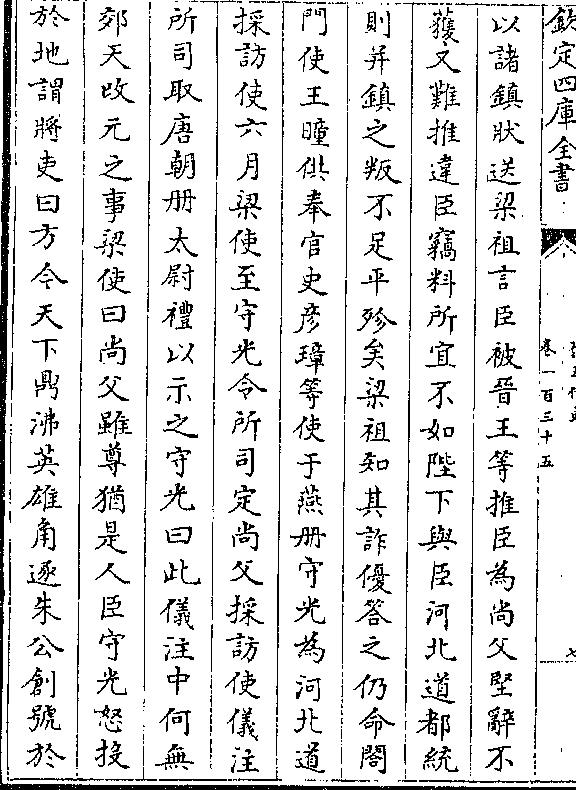 欽定四庫全書
卷一百三十五
以諸鎮狀送梁祖言臣被晉王等推臣為尚父堅辭不
獲又難推違臣竊料所宜不如陛下與臣河北道都統
則并鎮之叛不足平殄矣梁祖知其詐優答之仍命閤
門使王瞳供奉官史彦璋等使于燕册守光為河北道
採訪使六月梁使至守光令所司定尚父採訪使儀注
所司取唐朝册太尉禮以示之守光曰此儀注中何無
郊天改元之事梁使曰尚父雖尊猶是人臣守光怒投
於地謂將吏曰方今天下鼎沸英雄角逐朱公創號於